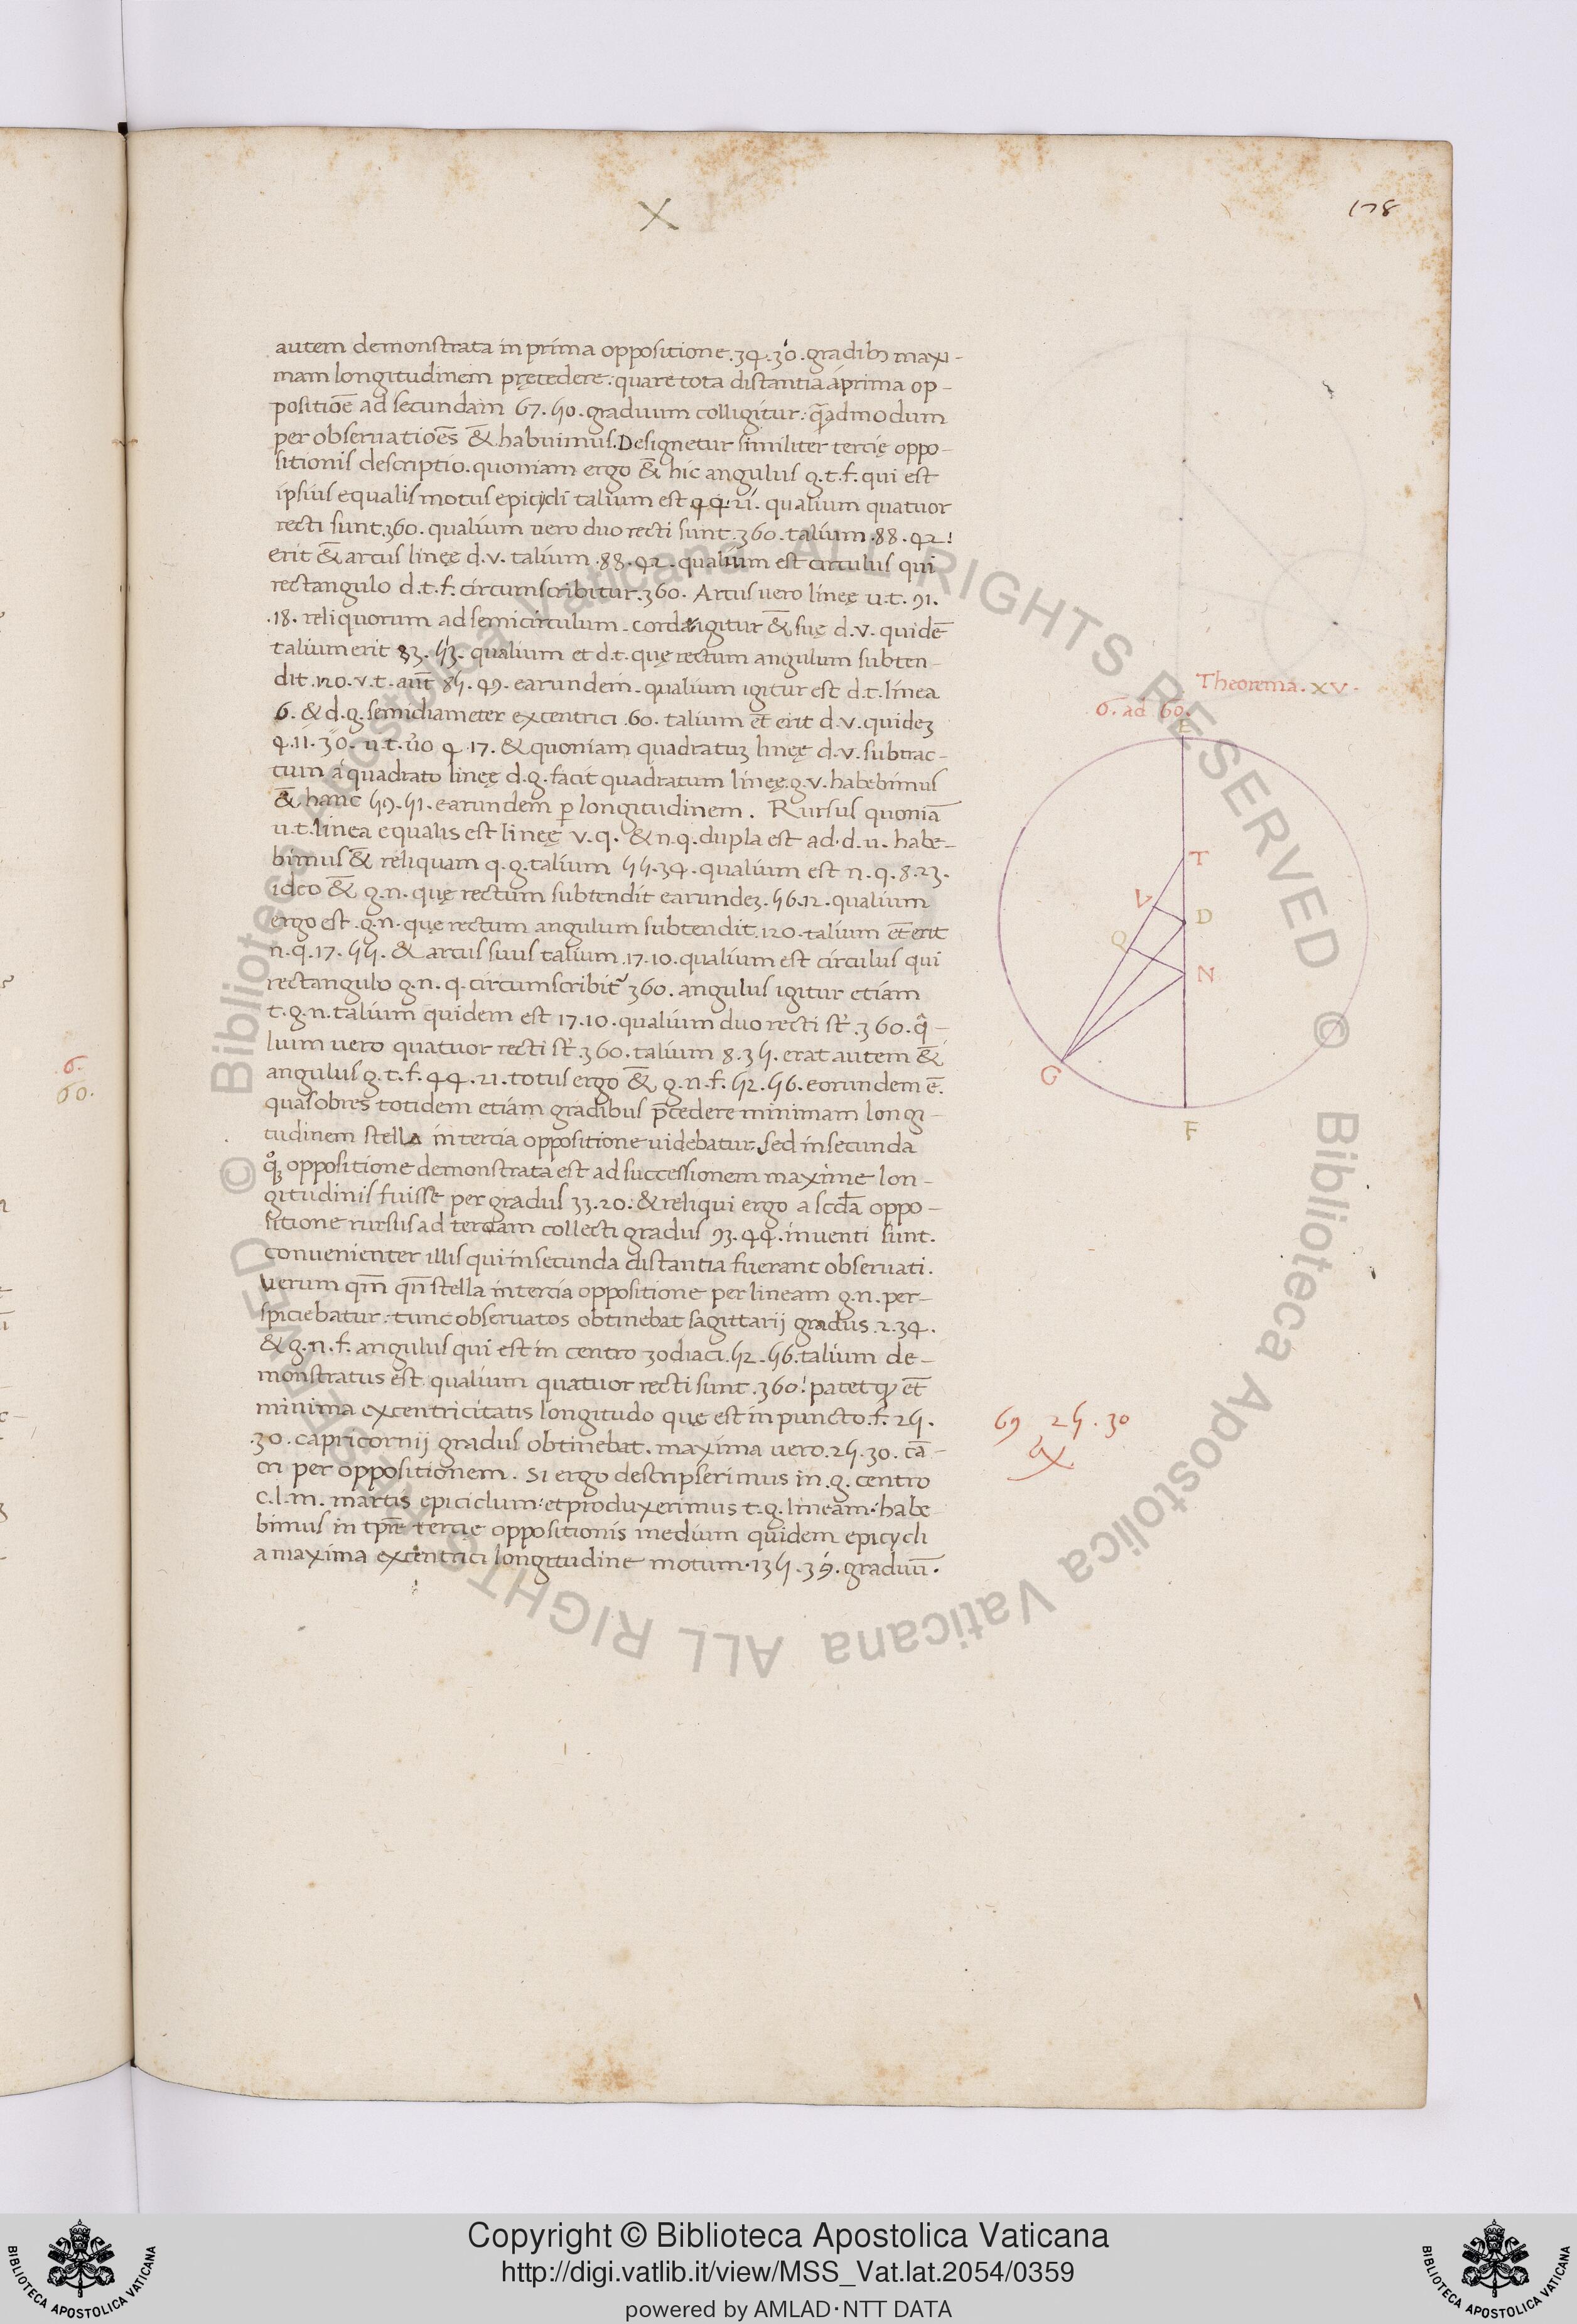 X
178
autem demonstrata in prima oppositione .34.30. gradibꝫ maxi-
mam longitudinem pręcedere: quare tota distantia a prima op-
positiōe ad secundam 67.50. graduum colligitur: quēadmodum
per obseruatioēs & habuimus. Designetur similiter tercię oppo-
sitionis descriptio. quoniam ergo & hic angulus g.t.f. qui est
ipsius equalis motus epicycli talium est 44.21. qualium quatuor
recti sunt .360. qualium uero duo recti sunt .360. talium .88.42!
erit & arcus linęę d.v. talium .88.42. qualium est circulus qui
rectangulo d.t.f. circumscribitur .360. Arcus uero linęę u.t. 91.
.18. reliquorum ad semicirculum. cordę igitur & suę d.v. quidē
talium erit 83.53. qualium et d.t. quę rectum angulum subten-
dit .120. v.t. aūt 85.49. earundem. qualium igitur est d.t. linea
6. & d.g. semidiameter excentrici .60. talium et erit d.v. quideꝫ
4.11.30. u.t. ůo 4.17. & quoniam quadratuꝫ linęę d.v. subtrac-
tum a quadrato linęę d.g. facit quadratum linęę.g.v. habebimus
& hanc 59.51. earundem p longitudinem. Rursus quoniā
u.t. linea equalis est linęę v.q. & n.q. dupla est ad.d.u. habe-
bimus & reliquam q.g. talium 55.34. qualium est n.q. 8.23.
ideo & g.n. quę rectum subtendit earundeꝫ. 56.12. qualium
ergo est .g.n. que rectum angulum subtendit .120. talium et erit
n.q. 17.55. & arcus suus talium .17.10. qualium est circulus qui
rectangulo g.n.q. circumscribit᷑ 360. angulus igitur etiam
t.g.n. talium quidem est 17.10. qualium duo recti st̕. 360. q̂-
lium uero quatuor recti st̕. 360. talium 8.35. erat autem &
angulus g.t.f. 44.21. totus ergo & g.n.f. 52.56. eorundem ē.
quasobres totidem etiam gradibus p̄cedere minimam longi-
tudinem stella in tercia oppositione uidebatur. sed in secunda
qͦꝫ oppositione demonstrata est ad successionem maxime lon-
gitudinis fuisse per gradus 33.20: & reliqui ergo a scd̄a oppo-
sitione rursus ad terciam collecti gradus 93.44. inuenti sunt.
conuenienter illis qui in secunda distantia fuerant obseruati.
Verum qm̄ qn̄ stella in tercia oppositione per lineam g.n. per-
spiciebatur: tunc obseruatos obtinebat sagittarij gradus .2.34.
& g.n.f. angulus qui est in centro zodiaci .52.56. talium de-
monstratus est qualium quatuor recti sunt .360! patet ꝙ et
minima excentricitatis longitudo que est in puncto .f. 25.
.30. capricornij gradus obtinebat. maxima uero .25.30. cā-
cri per oppositionem. Si ergo descripserimus in .g. centro
c.l.m. martis epiciclum: et produxerimus t.g. lineam: habe
bimus in tp̄re tercie oppositionis medium quidem epicycli
a maxima excentrici longitudine motum .135.39. graduū.
Theorema. XV.
6. ad 60.
E
T
V
D
Q
N
G
F
25.30
6.
60.
Copyright © Biblioteca Apostolica Vaticana
http://digi.vatlib.it/view/MSS_Vat.lat.2054/0359
powered by AMLAD·NTT DATA
BIBLIOTECA APOSTOLICA VATICANA
BIBLIOTECA APOSTOLICA VATICANA
© Biblioteca Apostolica Vaticana ALL RIGHTS RESERVED
© Biblioteca Apostolica Vaticana ALL RIGHTS RESERVED